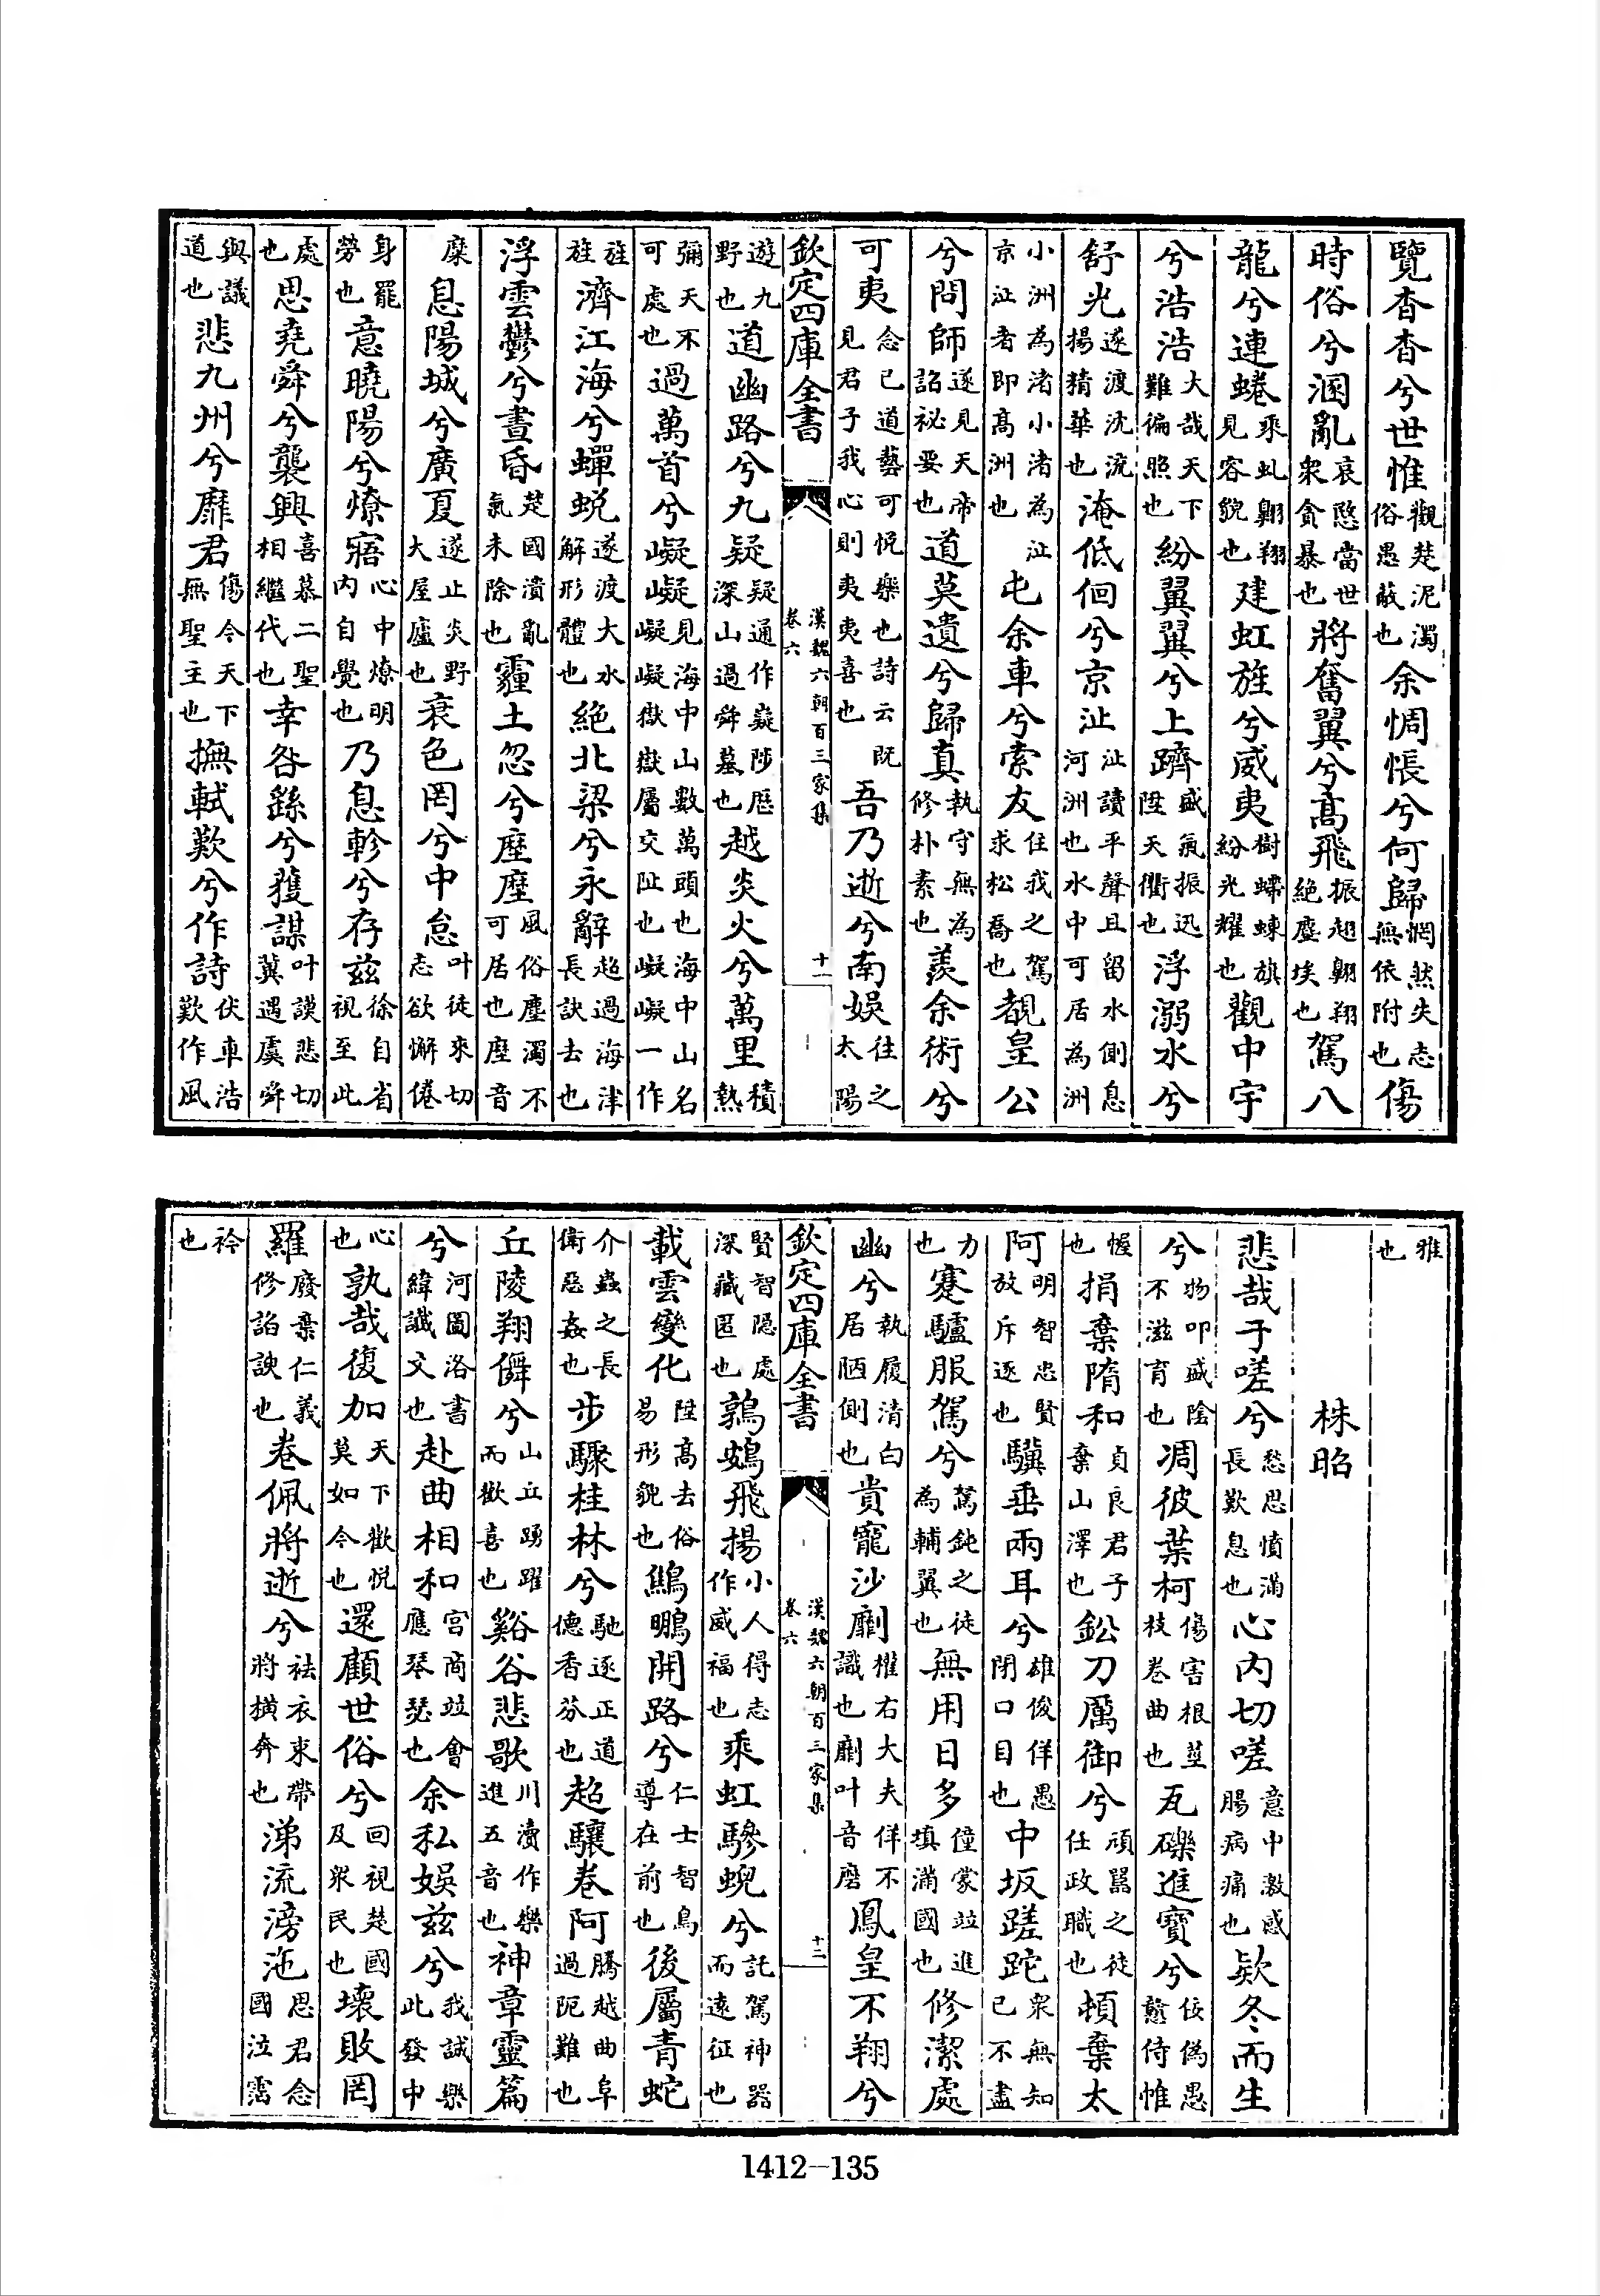 覽杳杳兮世惟觀楚泥濁俗愚蔽也余惆悵兮何歸惘然失志無依附也傷
時俗兮溷亂哀愍當世衆貪暴也將奮翼兮高飛振翅翺翔絶塵埃也駕八
龍兮連蜷乘虬翺翔見容貌也建虹旌兮威夷樹蠕蝀旗紛光耀也觀中宇
兮浩浩大哉天下難徧照也紛翼翼兮上躋盛氣振迅陞天衢也浮溺水兮
舒光遂渡沈流揚精華也淹低佪兮京沚沚讀平聲且留水側息河洲也水中可居為洲
小洲為渚小渚為沚京沚者即高洲也屯余車兮索友住我之駕求松喬也覩皇公
兮問師遂見天帝諮祕要也道莫遺兮歸真執守無為修朴素也羨余術兮
可夷念已道藝可悦樂也詩云既見君子我心則夷夷喜也吾乃逝兮南娛往之太陽
欽定四庫全書 漢魏六朝百三家集 卷六 十一
遊九野也道幽路兮九疑疑通作嶷陟歷深山過舜墓也越炎火兮萬里積熱
彌天不可處也過萬首兮嶷嶷見海中山數萬頭也海中山名嶷嶷嶽嶽屬交阯也嶷嶷一作
旌旌濟江海兮蟬蜕遂渡大水解形體也絶北梁兮永辭超過海津長訣去也
浮雲鬱兮晝昏楚國潰亂氣未除也霾土忽兮塺塺風俗塵濁不可居也塺音
糜息陽城兮廣夏遂止炎野大屋廬也衰色罔兮中怠叶徒來切志欲懈倦
身罷勞也意曉陽兮燎寤心中燎明内自覺也乃息軫兮存兹徐自省視至此
處也思堯舜兮襲興喜慕二聖相繼代也幸咎繇兮獲謀叶謨悲切冀遇虞舜
與議道也悲九州兮靡君傷今天下無聖主也撫軾歎兮作詩伏車浩歎作風
雅也
株昭
悲哉于嗟兮愁思憤滿長歎息也心内切嗟意中激感腸病痛也欵冬而生
兮物叩盛陰不滋育也凋彼葉柯傷害根莖枝卷曲也瓦礫進寶兮佞偽愚戇侍帷
幄也捐棄隋和貞良君子棄山澤也鈆刀厲御兮頑嚚之徒任政職也頓棄太
阿明智忠賢放斥逐也驥垂兩耳兮雄俊佯愚閉口目也中坂蹉跎衆無知己不盡
力也蹇驢服駕兮駑鈍之徒為輔翼也無用日多僮蒙竝進填滿國也修潔處
幽兮執履清白居陋側也貴寵沙劘權右大夫佯不識也劘叶音麽鳳皇不翔兮
欽定四庫全書 漢魏六朝百三家集 卷六 十二
賢智隱處深藏匿也鶉鴳飛揚小人得志作威福也乘虹驂蜺兮託駕神器而遠征也
載雲變化陞高去俗易形貌也鷦鵬開路兮仁士智鳥導在前也後屬青蛇
介蟲之長衛惡姦也步驟桂林兮馳逐正道德香芬也超驤卷阿騰越曲阜過阨難也
丘陵翔儛兮山丘踴躍而歡喜也谿谷悲歌川瀆作樂進五音也神章靈篇
兮河圖洛書緯讖文也赴曲相和宮商竝會應琴瑟也余私娛兹兮我誠樂此發中
心也孰哉復加天下歡悦莫如今也還顧世俗兮回視楚國及衆民也壞敗罔
羅廢棄仁義修諂諛也卷佩將逝兮袪衣束帶將橫奔也涕流滂沲思君念國泣霑
衿也
1412—135